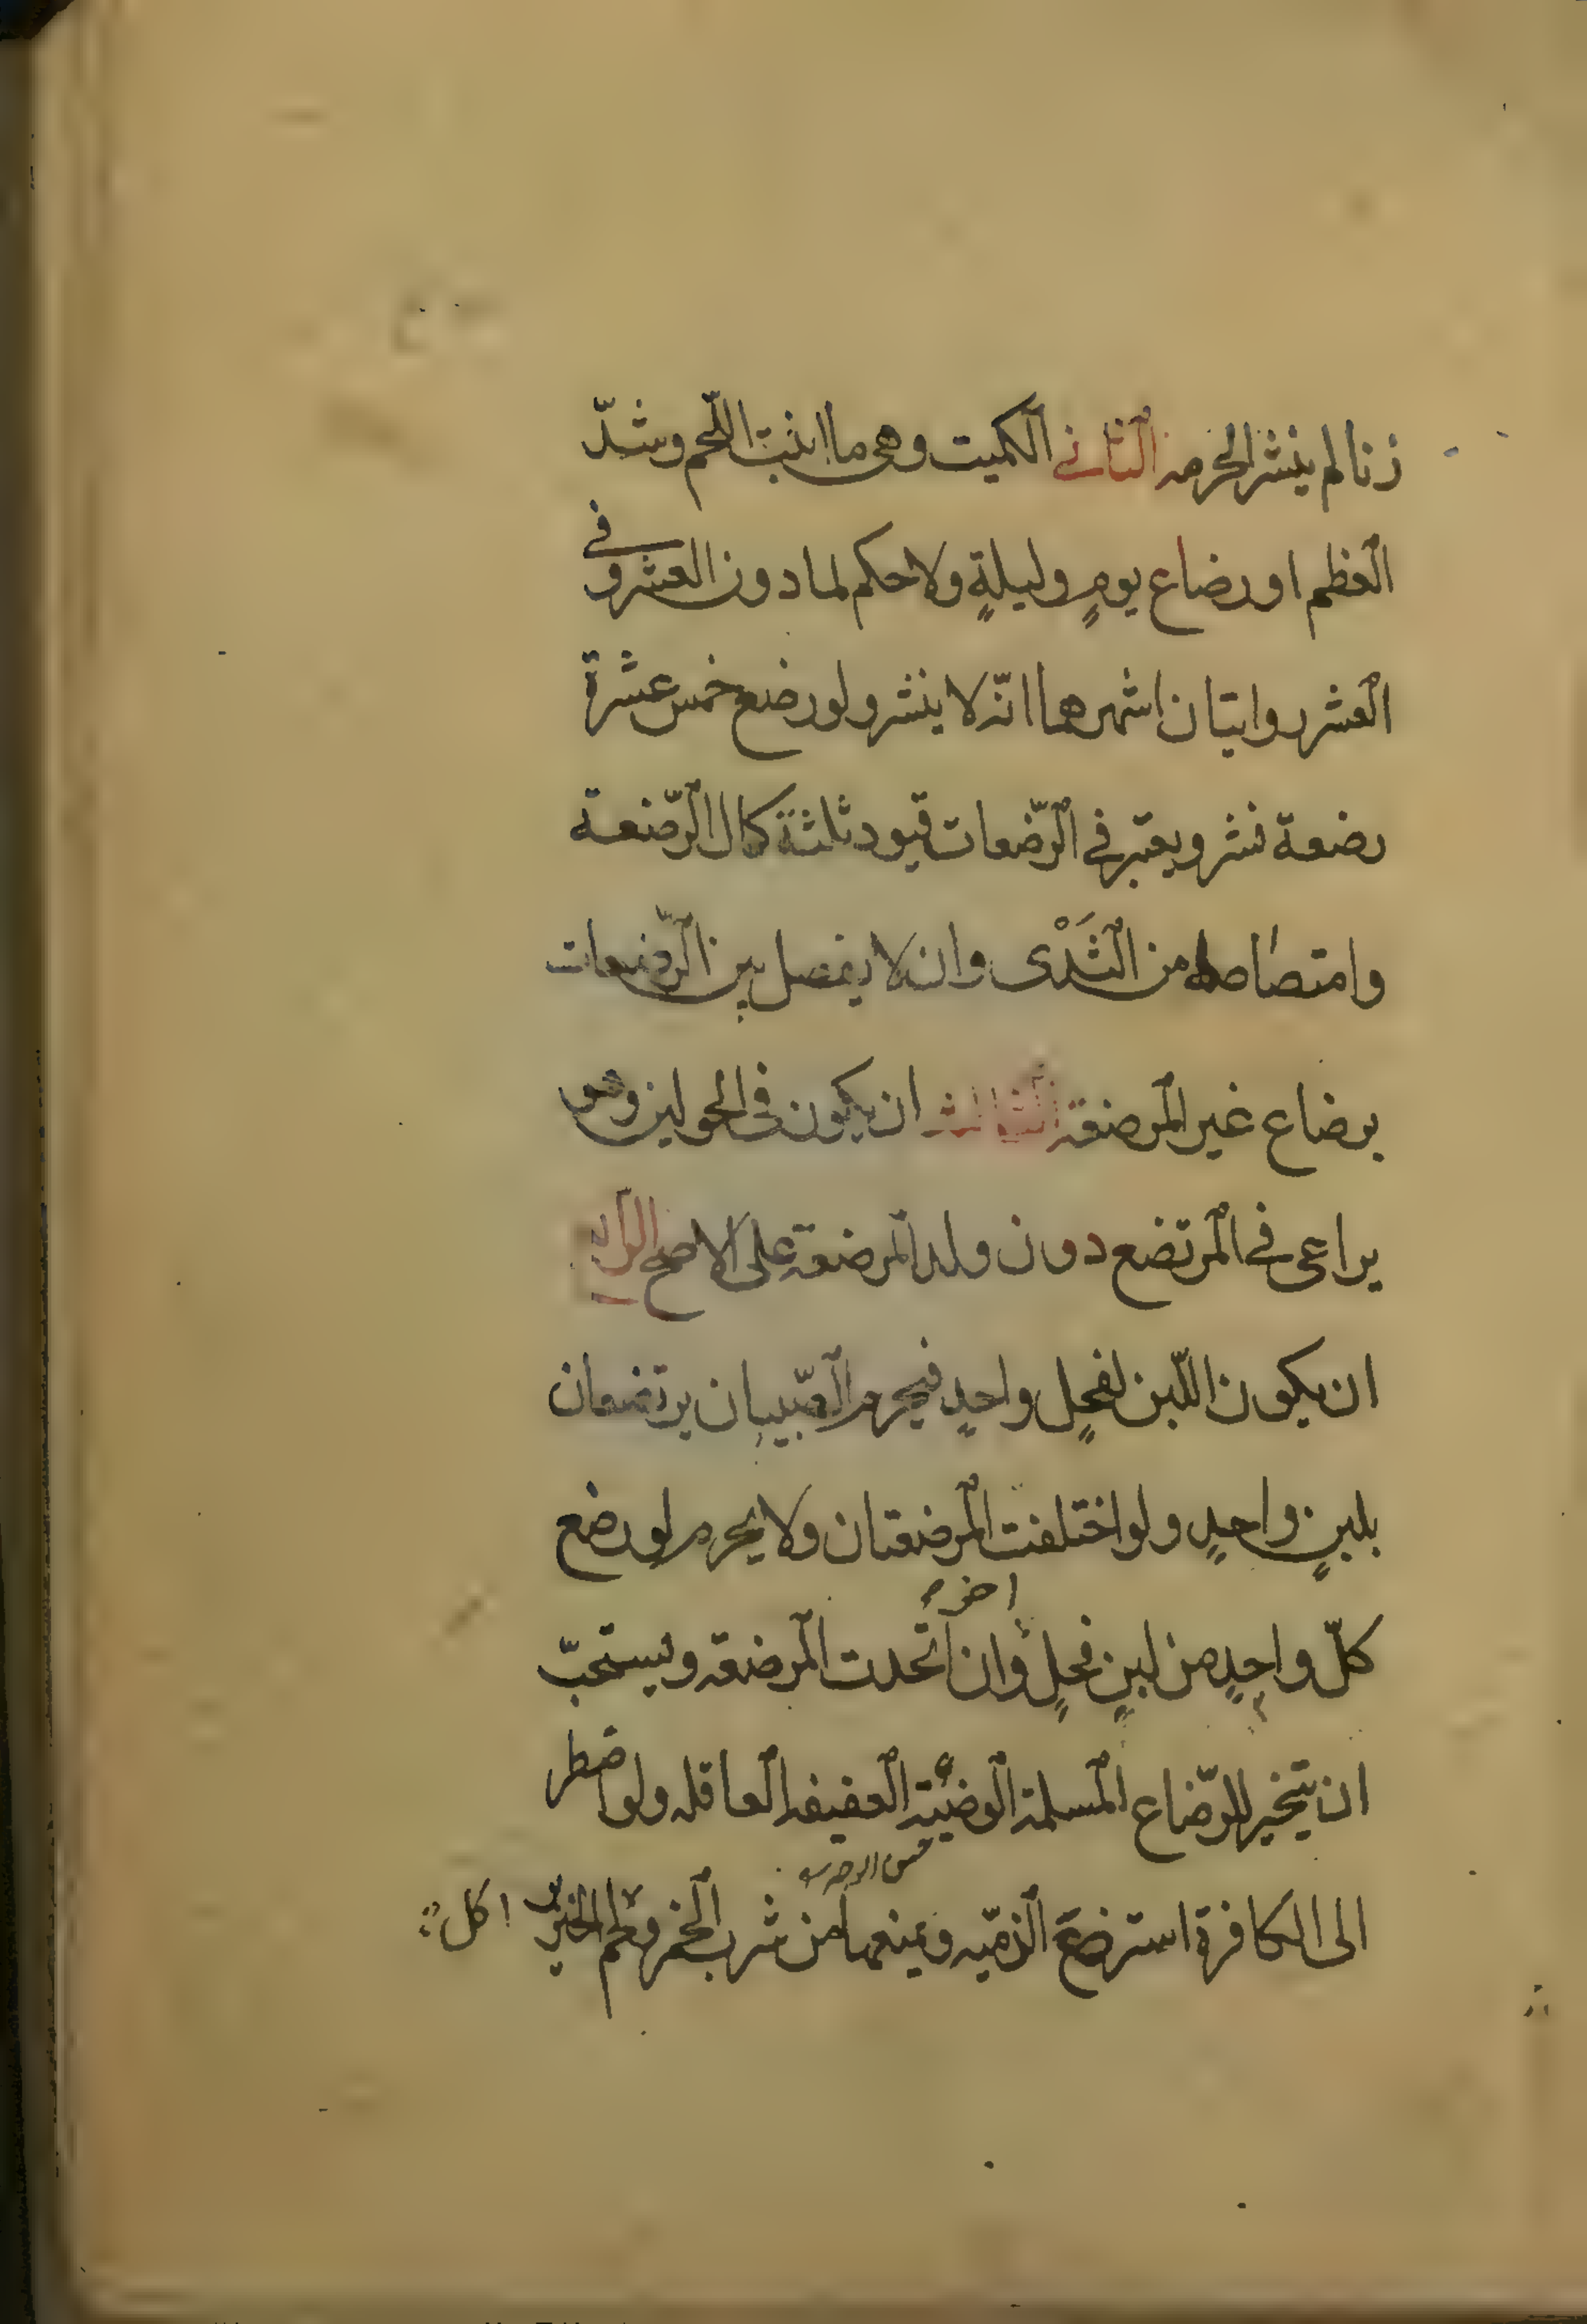 زنا لم ينشر الحرمه الثاني الكميت وهى ما انبت اللحم وشدّ
العظم او رضاع يومٍ وليلةٍ ولا حكم لما دون العشر وفي
العشر روايتان اشهرهما انّه لا ينشر ولو رضع خمس عشرة
رضعة نشر ويعتبر في الرّضعات قيود ثلثة كمال الرّضعة
وامتصاصها من الثَدْى وان لا يفصل بين الرضعات
برضاع غير المرضعة الثالث ان يكون فى الحولين وهو
يراعى في المرتضع دون ولد المرضعة على الاصح الرابع
ان يكون اللّبن لفحلٍ واحدٍ فيحرم الصّبيان يرتضعان
بلبنٍ واحدٍ ولو اختلفت المرضعتان ولا يحرم لو رضع
اخر
كلّ واحدٍ من لبنٍ فحلٍ وان اتحدت المرضعة ويستحبّ
ان يتخير للرّضاع المسلمة الوضيئة العفيفه العاقله ولو اضطر
الى الكافرة استرضع الذميّه ويمنعها من شرب الخمر ولحم الخنزير اكل